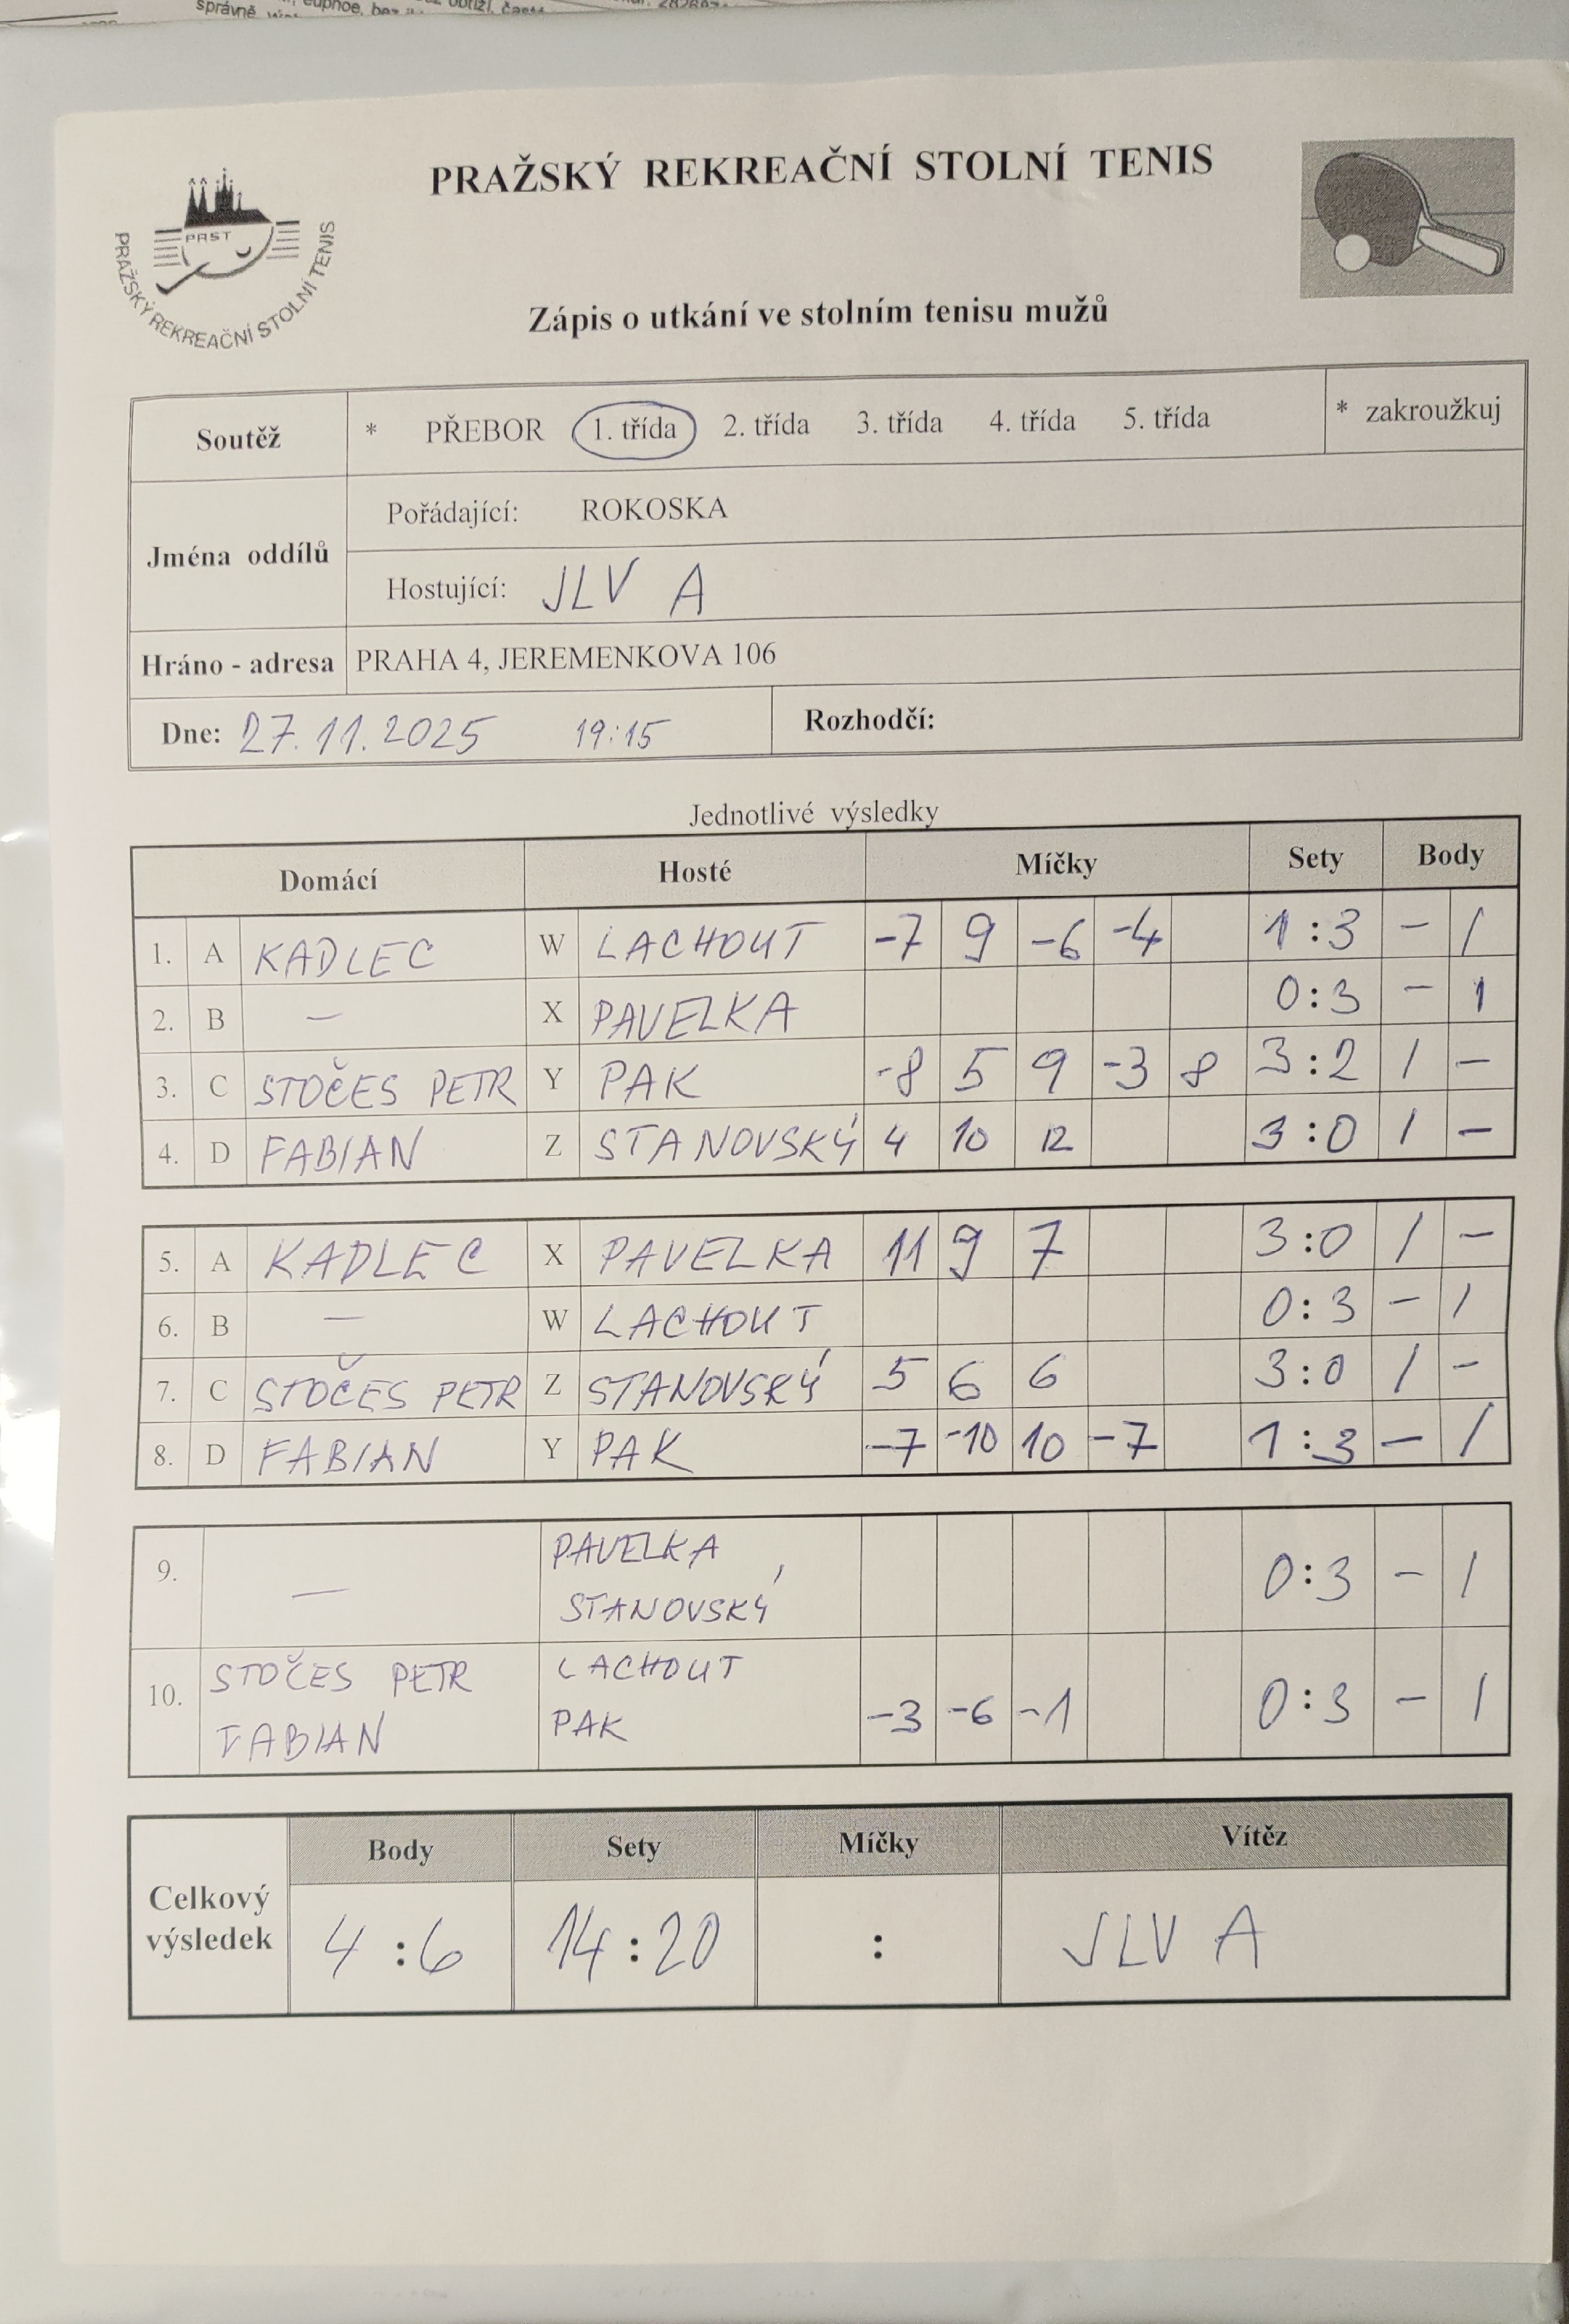 PRAŽSKÝ REKREAČNÍ STOLNÍ TENIS
PRST
PRAŽSKÝ REKREAČNÍ STOLNÍ TENIS
Zápis o utkání ve stolním tenisu mužů
Soutěž * PŘEBOR 1. třída 2. třída 3. třída 4. třída 5. třída * zakroužkuj
Jména oddílů
Pořádající: ROKOSKA
Hostující: JLV A
Hráno - adresa PRAHA 4, JEREMENKOVA 106
Dne: 27.11.2025 19:15 Rozhodčí:
Jednotlivé výsledky
Domácí Hosté Míčky Sety Body
1. A KADLEC W LACHOUT -7 9 -6 -4 1:3 - 1
2. B - X PAVELKA 0:3 - 1
3. C STOČES PETR Y PAK -8 5 9 -3 8 3:2 1 -
4. D FABIAN Z STANOVSKÝ 4 10 12 3:0 1 -
5. A KADLEC X PAVELKA 11 9 7 3:0 1 -
6. B - W LACHOUT 0:3 - 1
7. C STOČES PETR Z STANOVSKÝ 5 6 6 3:0 1 -
8. D FABIAN Y PAK -7 -10 10 -7 1:3 - 1
9. - PAVELKA STANOVSKÝ 0:3 - 1
10. STOČES PETR LACHOUT
FABIAN PAK -3 -6 -1 0:3 - 1
Body Sety Míčky Vítěz
Celkový výsledek 4:6 14:20 : JLV A